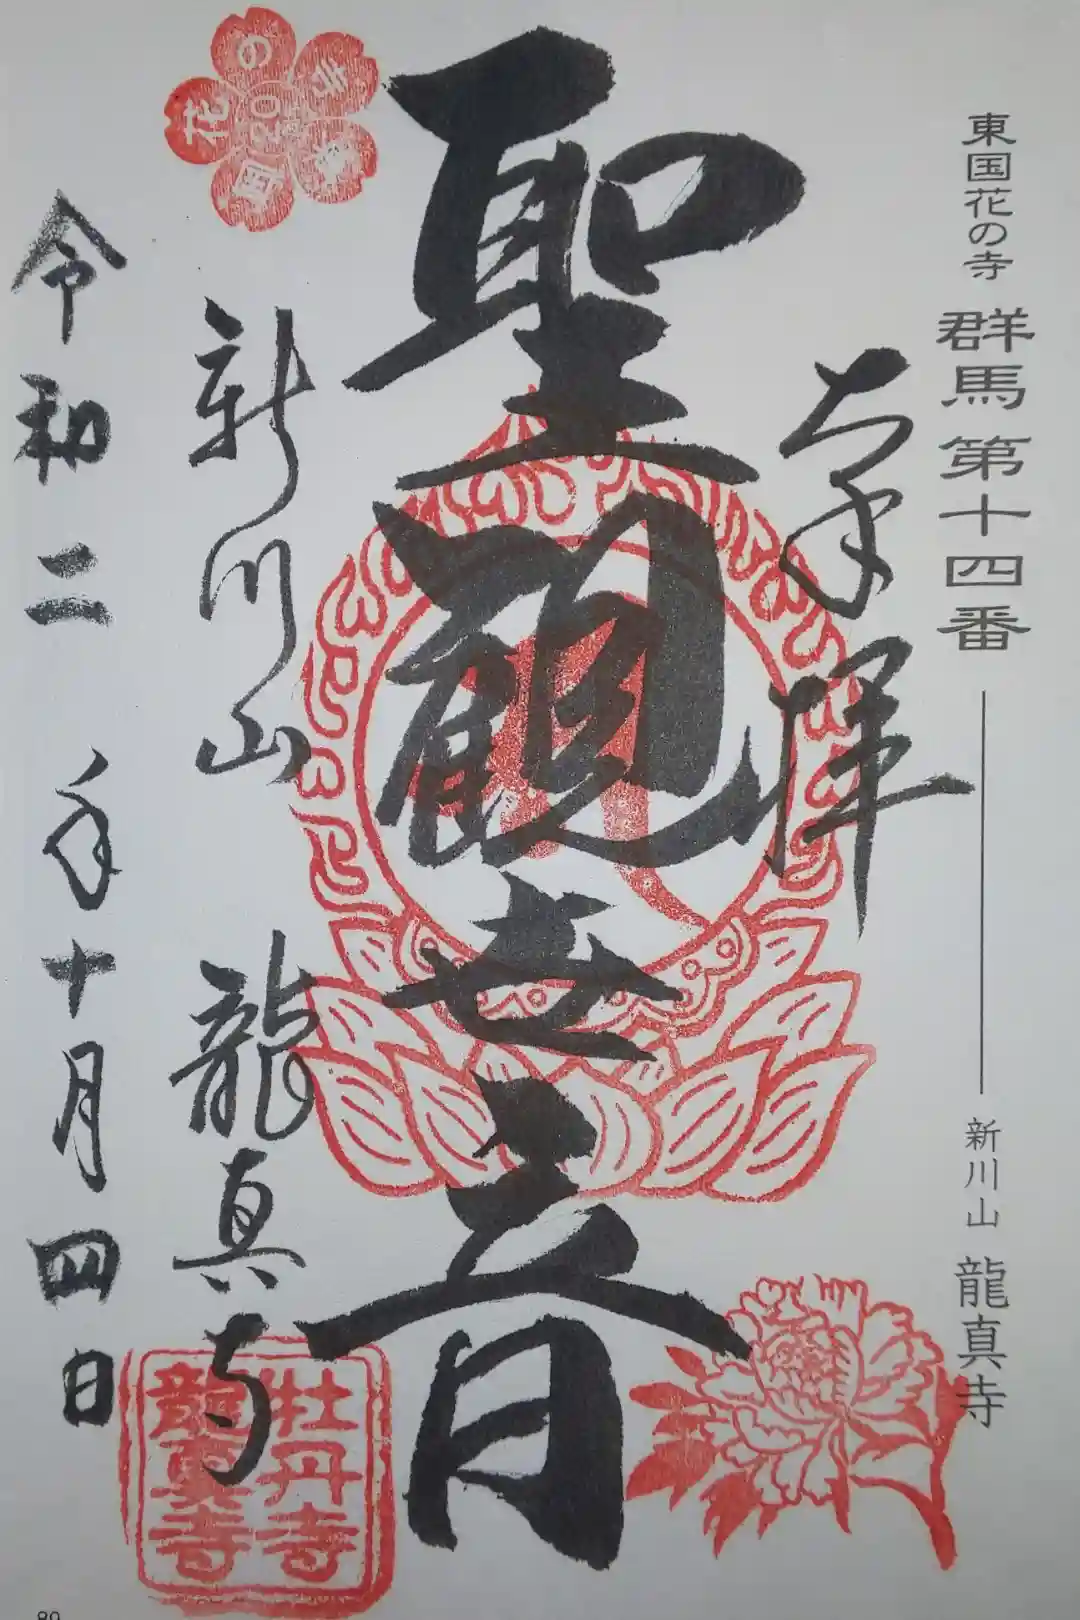 東国花の寺 群馬第十四番 新川山 龍真寺
奉拝
聖観世音
新川山 龍真寺
令和二年十月四日
牡丹寺
龍真寺
花の寺
80